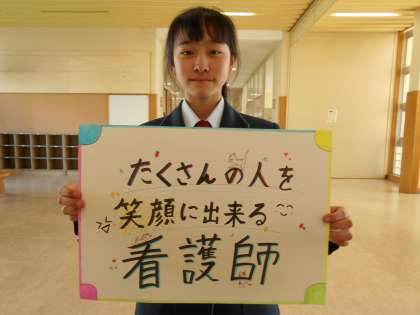 たくさんの人を
笑顔に出来る
看護師